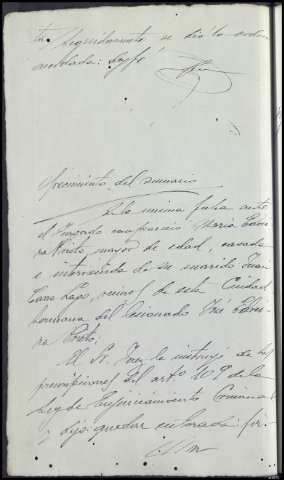 Seguidamente se dió la orden
acordada: doy fé
Ofrecimiento del sumario
En la misma fecha ante
el Juzgado compareció Maria
mayor de edad, casada
e intervenida de su marido Juan
Cano vecinos de esta Ciudad
hermana del lesionado José
Prieto;
El Sr. Juez la instruyó de las
prescripciones del artº 109 de la
Ley de Enjuiciamiento Criminal
y dijo quedar enterada: fir-